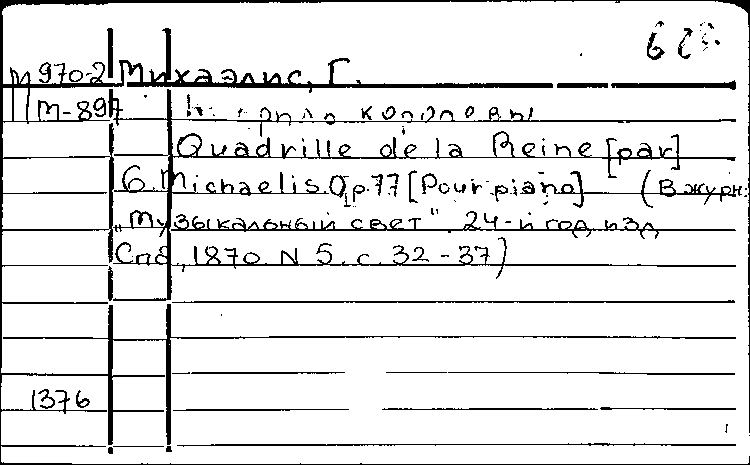 М 970-2 Михаэлис, Г.
М-897 королевы
Quadrille de la Reine [par]
G. Michaelis. Op. 77 [Pour piano] (В журн:
"Музыкальный свет". 24-й год изд.
Спб., 1870. N 5. с. 32-37)
1376